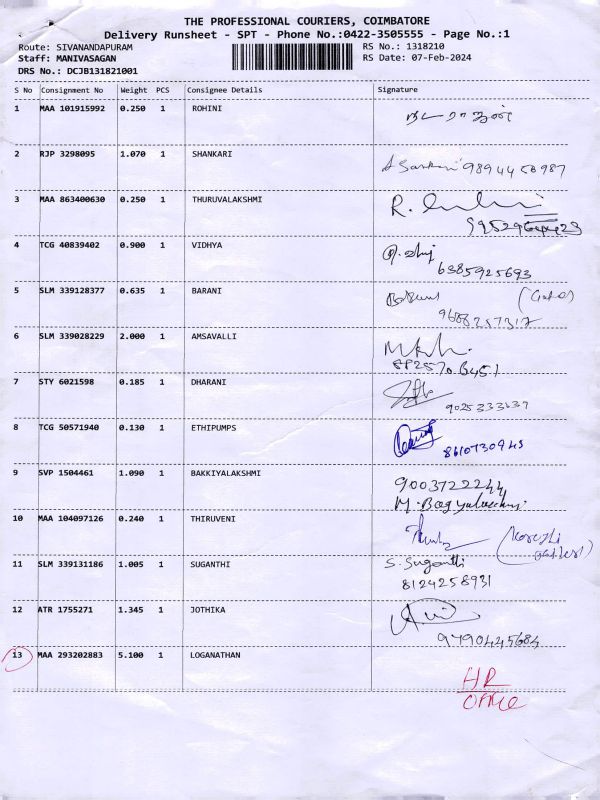 THE PROFESSIONAL COURIERS, COIMBATORE
Delivery Runsheet - SPT - Phone No.:0422-3505555 - Page No.:1
Route: SIVANANDAPURAM RS No.: 1318210
Staff: MANIVASAGAN RS Date: 07-Feb-2024
DRS No.: DCJB131821001
S No Consignment No Weight PCS Consignee Details Signature
1 MAA 101915992 0.250 1 ROHINI
2 RJP 3298095 1.070 1 SHANKARI
3 MAA 863400630 0.250 1 THURUVALAKSHMI
4 TCG 40839402 0.900 1 VIDHYA
6385925693
5 SLM 339128377 0.635 1 BARANI
9688257317
6 SLM 339028229 2.000 1 AMSAVALLI
7 STY 6021598 0.185 1 DHARANI
8 TCG 50571940 0.130 1 ETHIPUMPS
8610730943
9 SVP 1504461 1.090 1 BAKKIYALAKSHMI
9003722244
10 MAA 104097126 0.240 1 THIRUVENI
11 SLM 339131186 1.005 1 SUGANTHI S. Suganthi
8124258931
12 ATR 1755271 1.345 1 JOTHIKA
9790445684
13 MAA 293202883 5.100 1 LOGANATHAN
HR
OFFICE